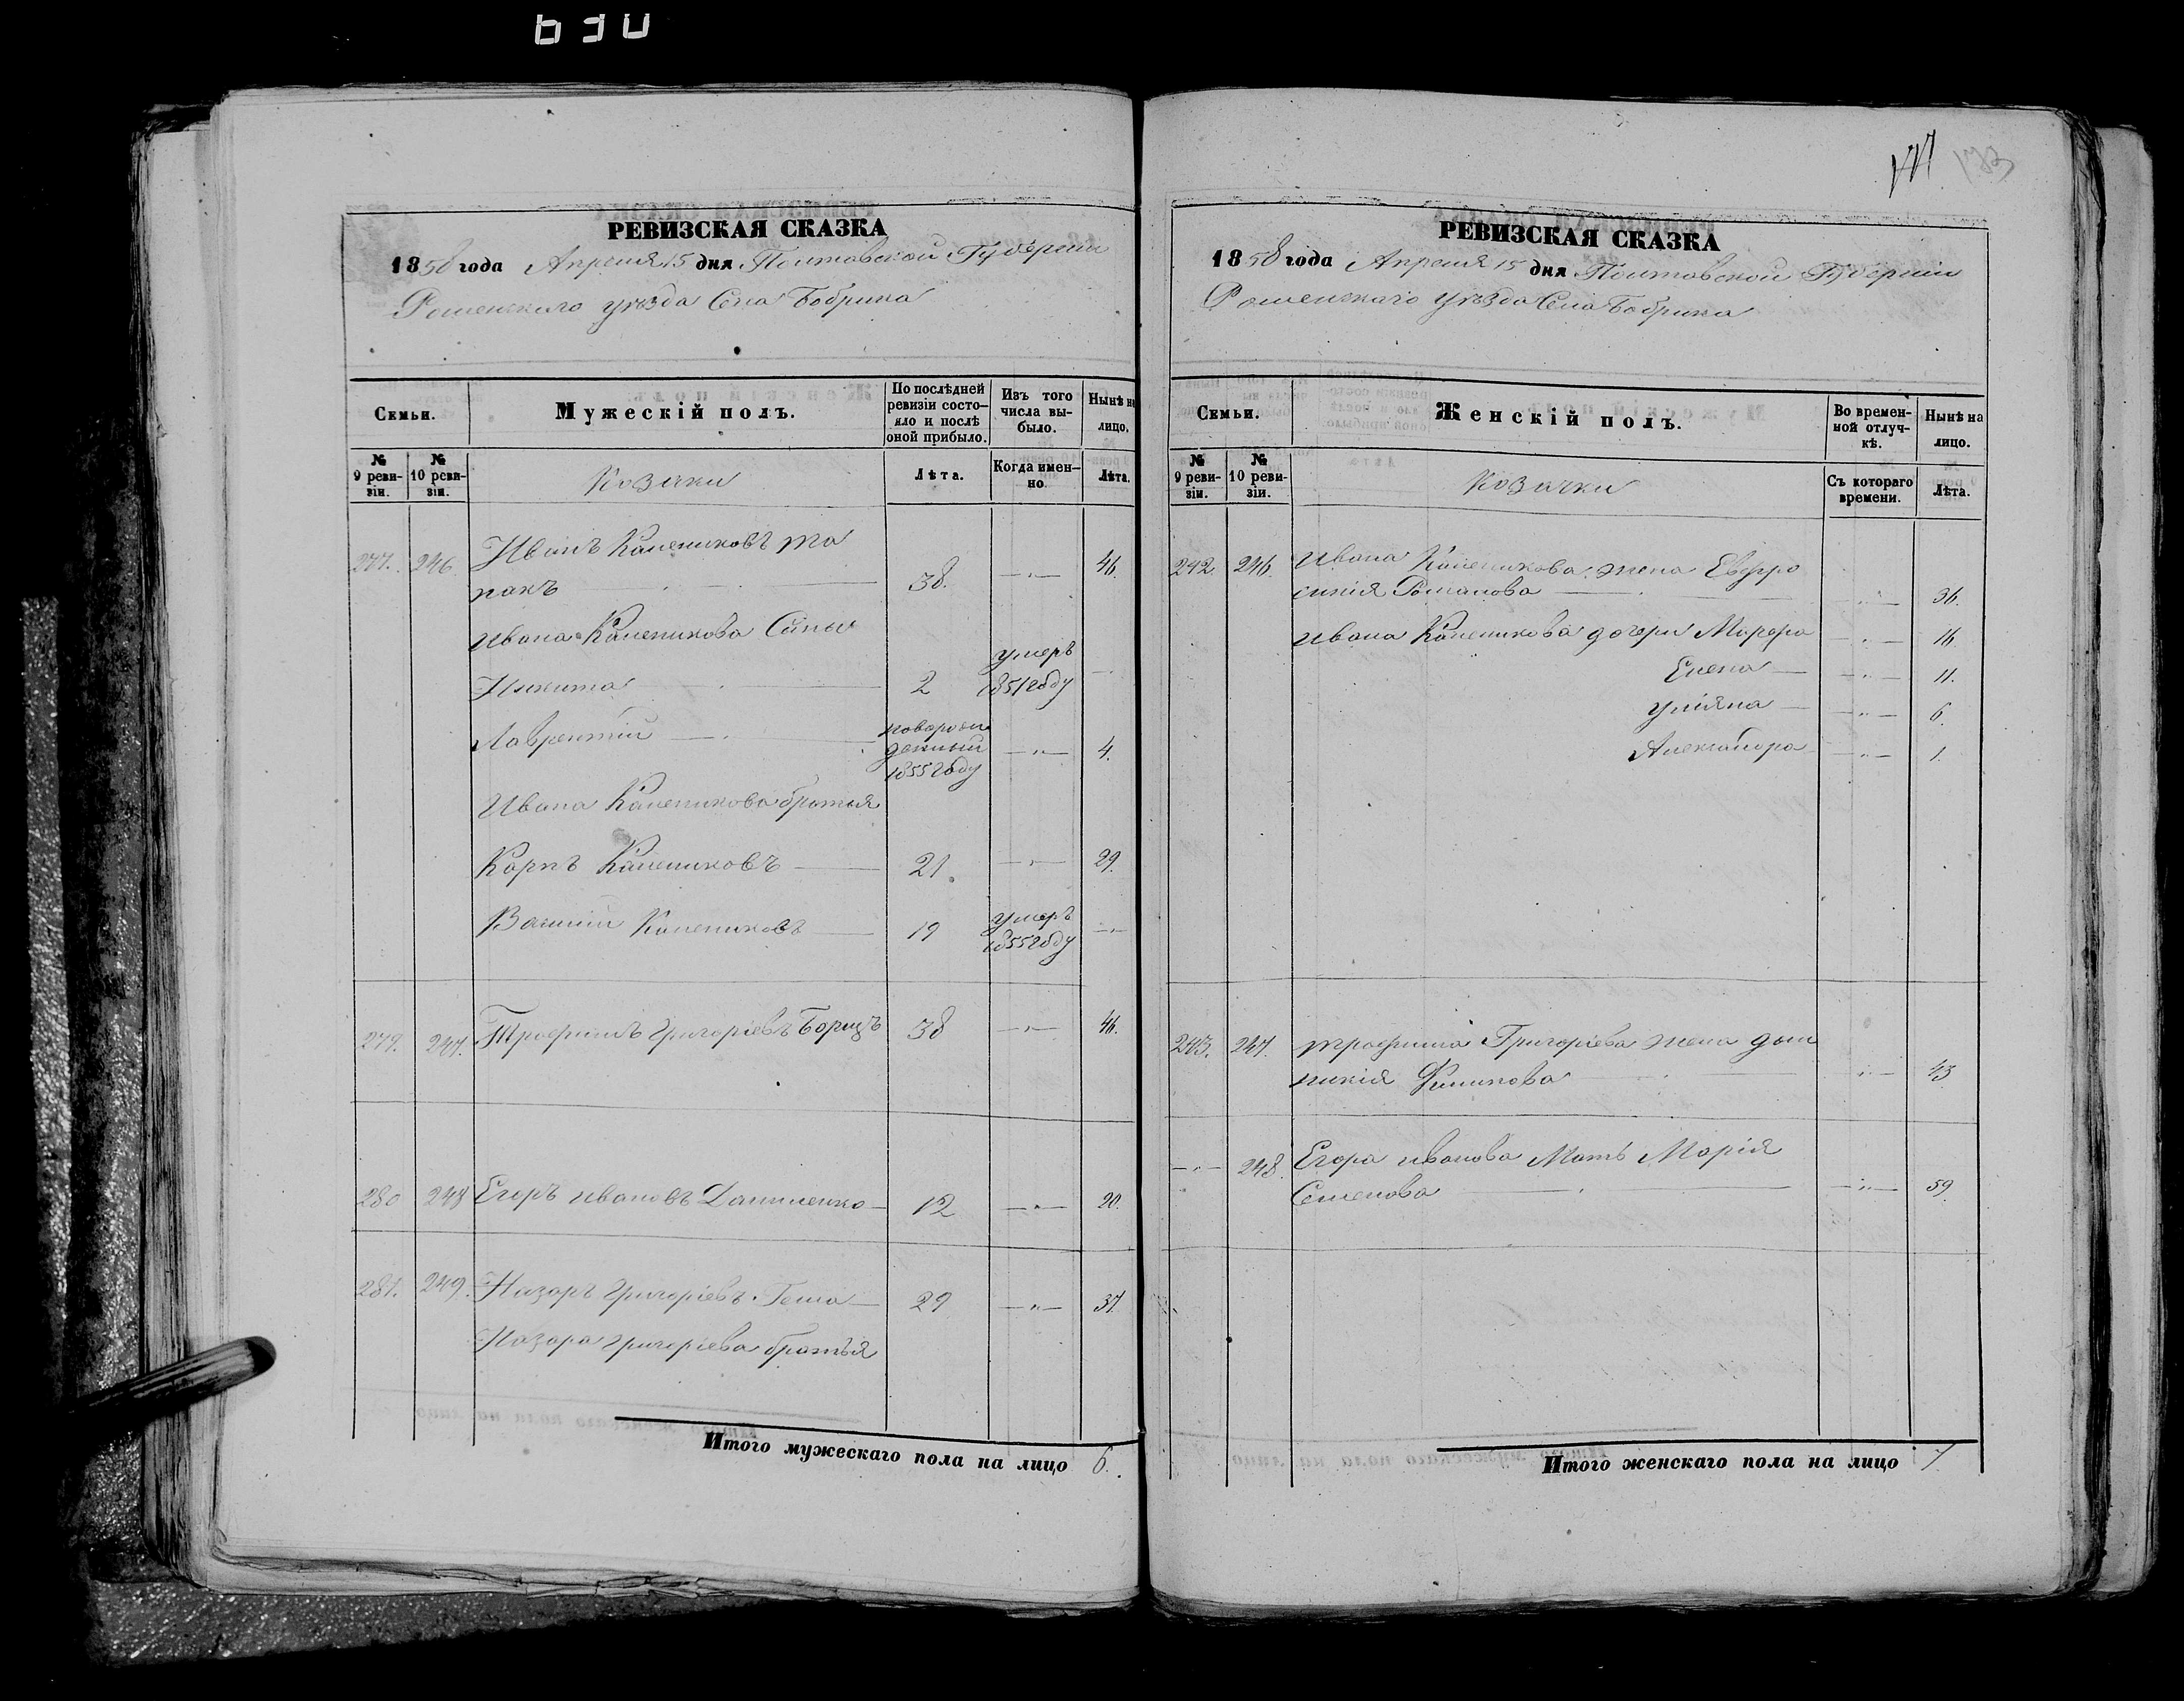 630
РЕВИЗСКАЯ СКАЗКА
1858 года Апреля 15 дня Полтавской Губерніи
Роменского уѣзда Села Бобрика
Семьи.
Мужескій полъ.
По послѣдней ревизіи состояло и послѣ оной прибыло.
Изъ того числа выбыло.
Нынѣ на лицо.
№ 9 ревизіи.
№ 10 ревизіи.
Козаки
Лѣта.
Когда именно.
Лѣта.
277. 246. Иванъ Калениковъ
38. —„— 46.
Ивана Каленикова Сыны
Никита 2 умеръ 1851 году —
Лаврентій новорожденный 1855 году —„— 4.
Ивана Каленикова братья
Карпъ Калениковъ 21. —„— 29.
Василій Калениковъ 19 умеръ 1855 году —„—
279. 247. Трофимъ Григоріевъ 38 —„— 46.
280 248 Егоръ Ивановъ Даниленко 12 —„— 20.
281. 249. Назаръ Григоріевъ 29 —„— 37.
Назара Григоріева братья
Итого мужескаго пола на лицо 6.
173
РЕВИЗСКАЯ СКАЗКА
1858 года Апреля 15 дня Полтавской Губерніи
Роменскаго уѣзда Села Бобрика
Семьи.
Женскій полъ.
Во временной отлучкѣ.
Нынѣ на лицо.
№ 9 ревизіи.
№ 10 ревизіи.
Козачки
Съ котораго времени.
Лѣта.
242. 246. Ивана Каленикова жена Евфро
синія Романова —„— 36.
Ивана Каленикова дочери Марфа —„— 16.
Елена —„— 11.
Уліяна —„— 6.
Александра —„— 1.
243. 247. Трофима Григоріева жена Дом
никія Филипова —„— 43
—„— 248. Егора Иванова Мать Марія
Семенова —„— 59.
Итого женскаго пола на лицо 7